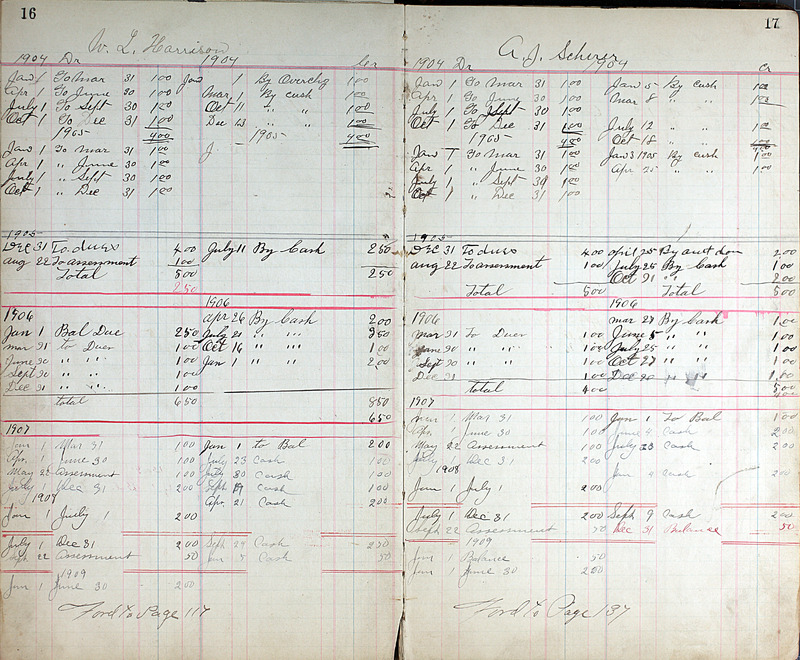 16
W. L. Harrison
1904 Dr 1904 Cr
Jan 1 To Mar 31 1 00 Jan 1 By Overchg 1 00
Apr 1 To June 30 1 00 Mar 1 By cush 1 00
July 1 To Sept 30 1 00 Oct 11 " " 1 00
Oct 1 To Dec 31 1 00 Dec 23 " " 1 00
1905 4 00 1905 4 00
Jan 1 To Mar 31 1 00 J
Apr 1 " June 30 1 00
July 1 " Sept 30 1 00
Oct 1 " Dec 31 1 00
1905
Dec 31 To dues 4 00 July 11 By Cash 2 50
aug 22 To assenment 1 00
Total 5 00 2 50
2 50
1906
1906 apr 26 By Cash 2 00
Jan 1 Bal Due 2 50 July 21 " " 3 50
mar 31 to Dues 1 00 Oct 16 " " 1 00
June 30 " " 1 00 Jan 1 " " 2 00
Sept 30 " " 1 00
Dec 31 " " 1 00
total 6 50 8 50
6 50
1907
Jan 1 Mar 31 1 00 Jan 1 to Bal 2 00
Apr. 1 June 30 1 00 July 23 Cash 1 00
May 22 Assessment 1 00 July 30 Cash 1 00
July 1 Dec 31 2 00 Sept 19 Cash 1 00
1908 Apr. 21 Cash 2 00
Jan 1 July 1 2 00
July 1 Dec 31 2 00 Sept 29 Cash 2 50
Sept 22 Assessment 50 Jan 5 Cash 50
1909
Jan 1 June 30 2 00
Ford to Page 117
17
A. J. Scherer
1904 Dr 1904 Cr
Jan 1 To Mar 31 1 00 Jan 5 By cush 1 00
Apr 1 To June 30 1 00 Mar 8 " " 1 00
July 1 To Sept 30 1 00
Oct 1 To Dec 31 1 00 July 12 " " 1 00
1905 4 00 Oct 18 " " 1 00
4 00
Jan 1 To Mar 31 1 00 Jan 3 1905 By cush 1 00
Apr 1 " June 30 1 00 Apr 25 " " 1 00
July 1 " Sept 30 1 00
Oct 1 " Dec 31 1 00
1905
Dec 31 To dues 4 00 april 25 By am't don 2 00
aug 22 To assenment 1 00 July 25 By Cash 1 00
Oct 21 " " 2 00
Total 5 00 Total 5 00
1906
1906 mar 27 By Cash 1 00
mar 31 To Dues 1 00 June 5 " " 1 00
June 30 " " 1 00 July 25 " " 1 00
Sept 30 " " 1 00 Oct 27 " " 1 00
Dec 31 1 00 Dec 20 " " 1 00
total 4 00 5 00
4 00
1907
Jan 1 Mar 31 1 00 Jan 1 To Bal 1 00
Apr. 1 June 30 1 00 June 4 Cash 2 00
May 22 Assessment 1 00 July 23 Cash 2 00
July 1 Dec 31 2 00
1908 Jan 9 Cash 2 00
Jan 1 July 1 2 00
July 1 Dec 31 2 00 Sept 9 Cash 2 00
Sept 22 Assessment 50 Dec 31 Balance 50
1909
Jan 1 Balance 50
Jan 1 June 30 2 00
Ford to Page 137